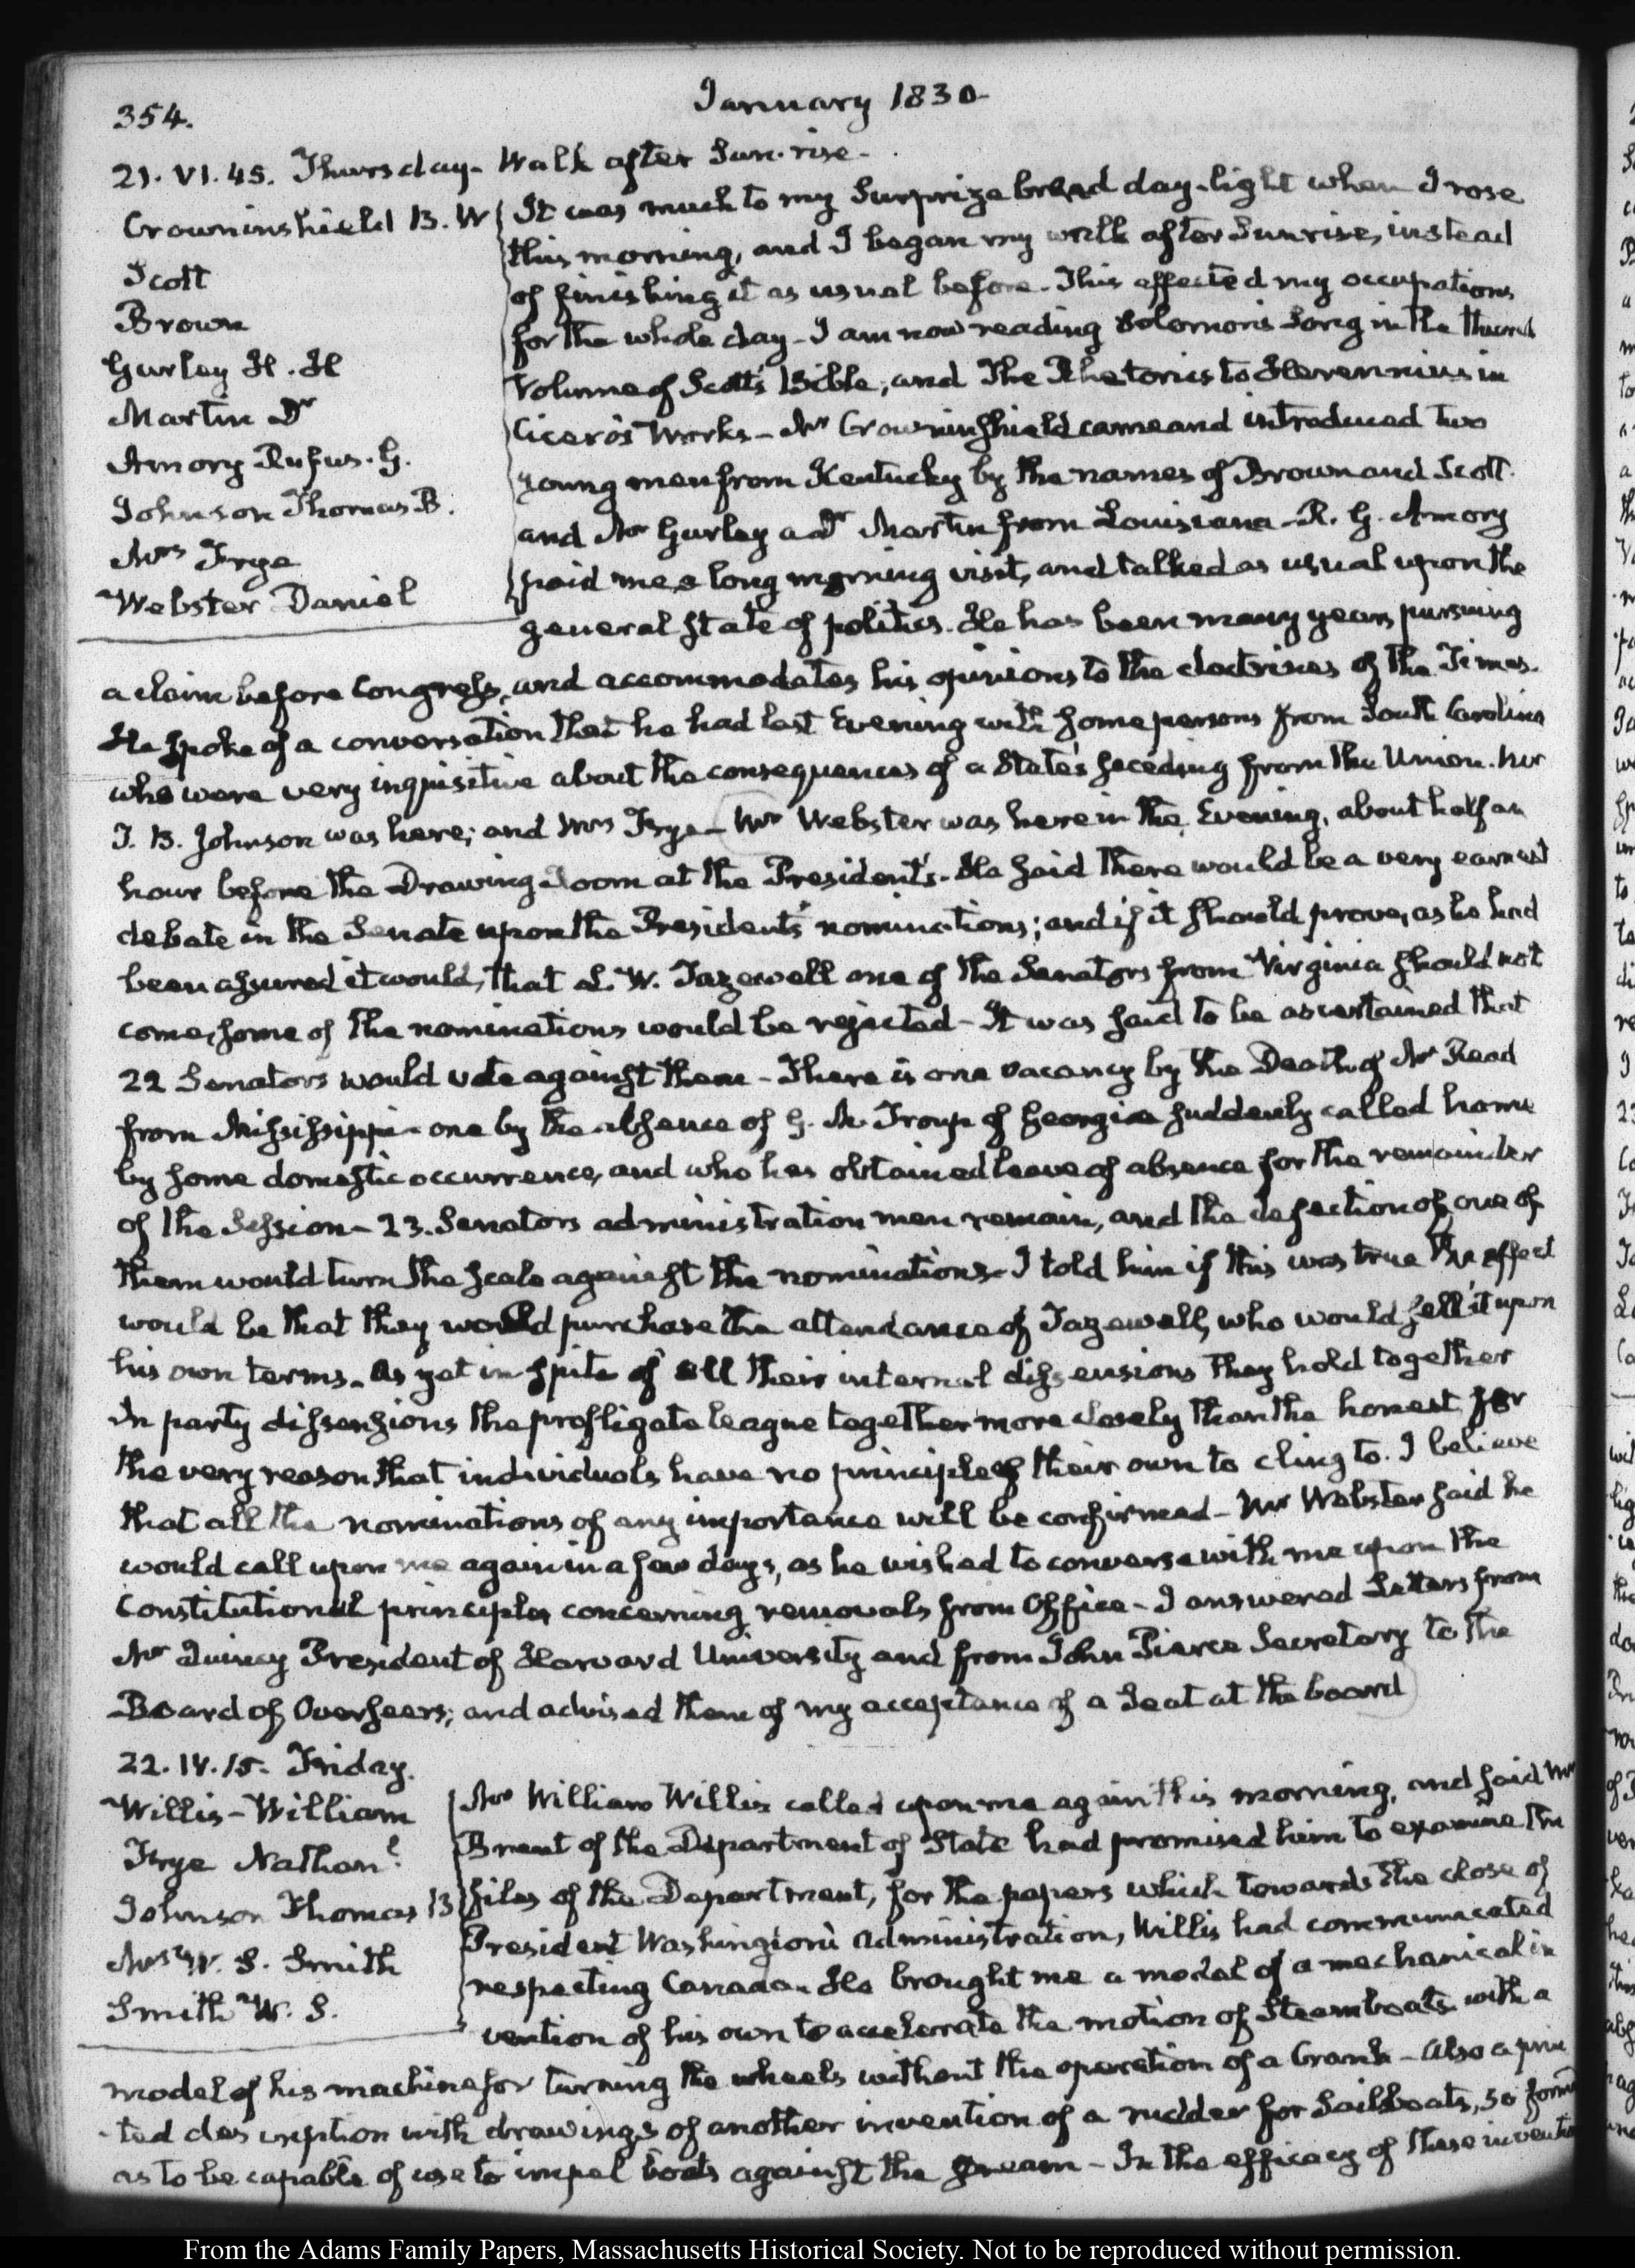 354.
January 1830
21. VI. 45. Thursday. Walk after Sun-rise.
Crowninshield B. W
Scott
Brown
Gurley H. H
Martin Dr
Amory Rufus. G.
Johnson Thomas B.
Mrs Frye
Webster Daniel
It was much to my Surprize broad day-light when I rose
this morning, and I began my walk after Sunrise, instead
of finishing it as usual before. This effected my occupations
for the whole day. I am now reading Solomon's Song in the
Volume of Scott's Bible, and The Rhetorics to Herennius in
Cicero's Works. Mr Crowninshield came and introduced two
young men from Kentucky by the names of Brown and Scott.
and Mr Gurley a Dr Martin from Louisiana. R. G. Amory
paid me a long morning visit, and talked as usual upon the
general State of politics. He has been many years pursuing
a claim before Congress, and accommodates his opinions to the doctrines of the Times.
He spoke of a conversation that he had last Evening with some persons from South Carolina
who were very inquisitive about the consequences of a State's seceding from the Union. Mr
T. B. Johnson was here; and Mrs Frye. Mr Webster was here in the Evening, about half an
hour before the Drawing Room at the President's. He said there would be a very earnest
debate in the Senate upon the President's nominations; and if it should prove, as he had
been assured it would, that L. W. Tazewell one of the Senators from Virginia should not
come, some of the nominations would be rejected. It was said to be ascertained that
22 Senators would vote against them. There is one vacancy by the Death of Mr Read
from Mississippi. one by the absence of G. M. Troup of Georgia suddenly called home
by some domestic occurrence, and who has obtained leave of absence for the remainder
of the Session. 23. Senators administration men remain, and the defection of one of
them would turn the scale against the nominations. I told him if this was true the effect
would be that they would purchase the attendance of Tazewell, who would sell it upon
his own terms. As yet in spite of all their internal dissensions they hold together
In party dissensions the profligate league together more closely than the honest for
the very reason that individuals have no principles of their own to cling to. I believe
that all the nominations of any importance will be confirmed. Mr Webster said he
would call upon me again in a few days, as he wished to converse with me upon the
Constitutional principles concerning removals from Office. I answered Letters from
Mr Quincy President of Harvard University and from John Pierce Secretary to the
Board of Overseers; and advised them of my acceptance of a Seat at the board
22. IV. 15. Friday.
Willis William
Frye Nathanl
Johnson Thomas B
Mrs W. S. Smith
Smith W. S.
Mr William Willis called upon me again this morning, and said Mr
Brent of the Department of State had promised him to examine the
files of the Department, for the papers which towards the close of
President Washington's administration, Willis had communicated
respecting Canada. He brought me a model of a mechanical in
vention of his own to accelerate the motion of Steamboats with a
model of his machine for turning the wheels without the operation of a Crank. also a prin
ted description with drawings of another invention of a rudder for Sailboats, so formed
as to be capable of use to impel boats against the stream. In the efficacy of these
From the Adams Family Papers, Massachusetts Historical Society. Not to be reproduced without permission.